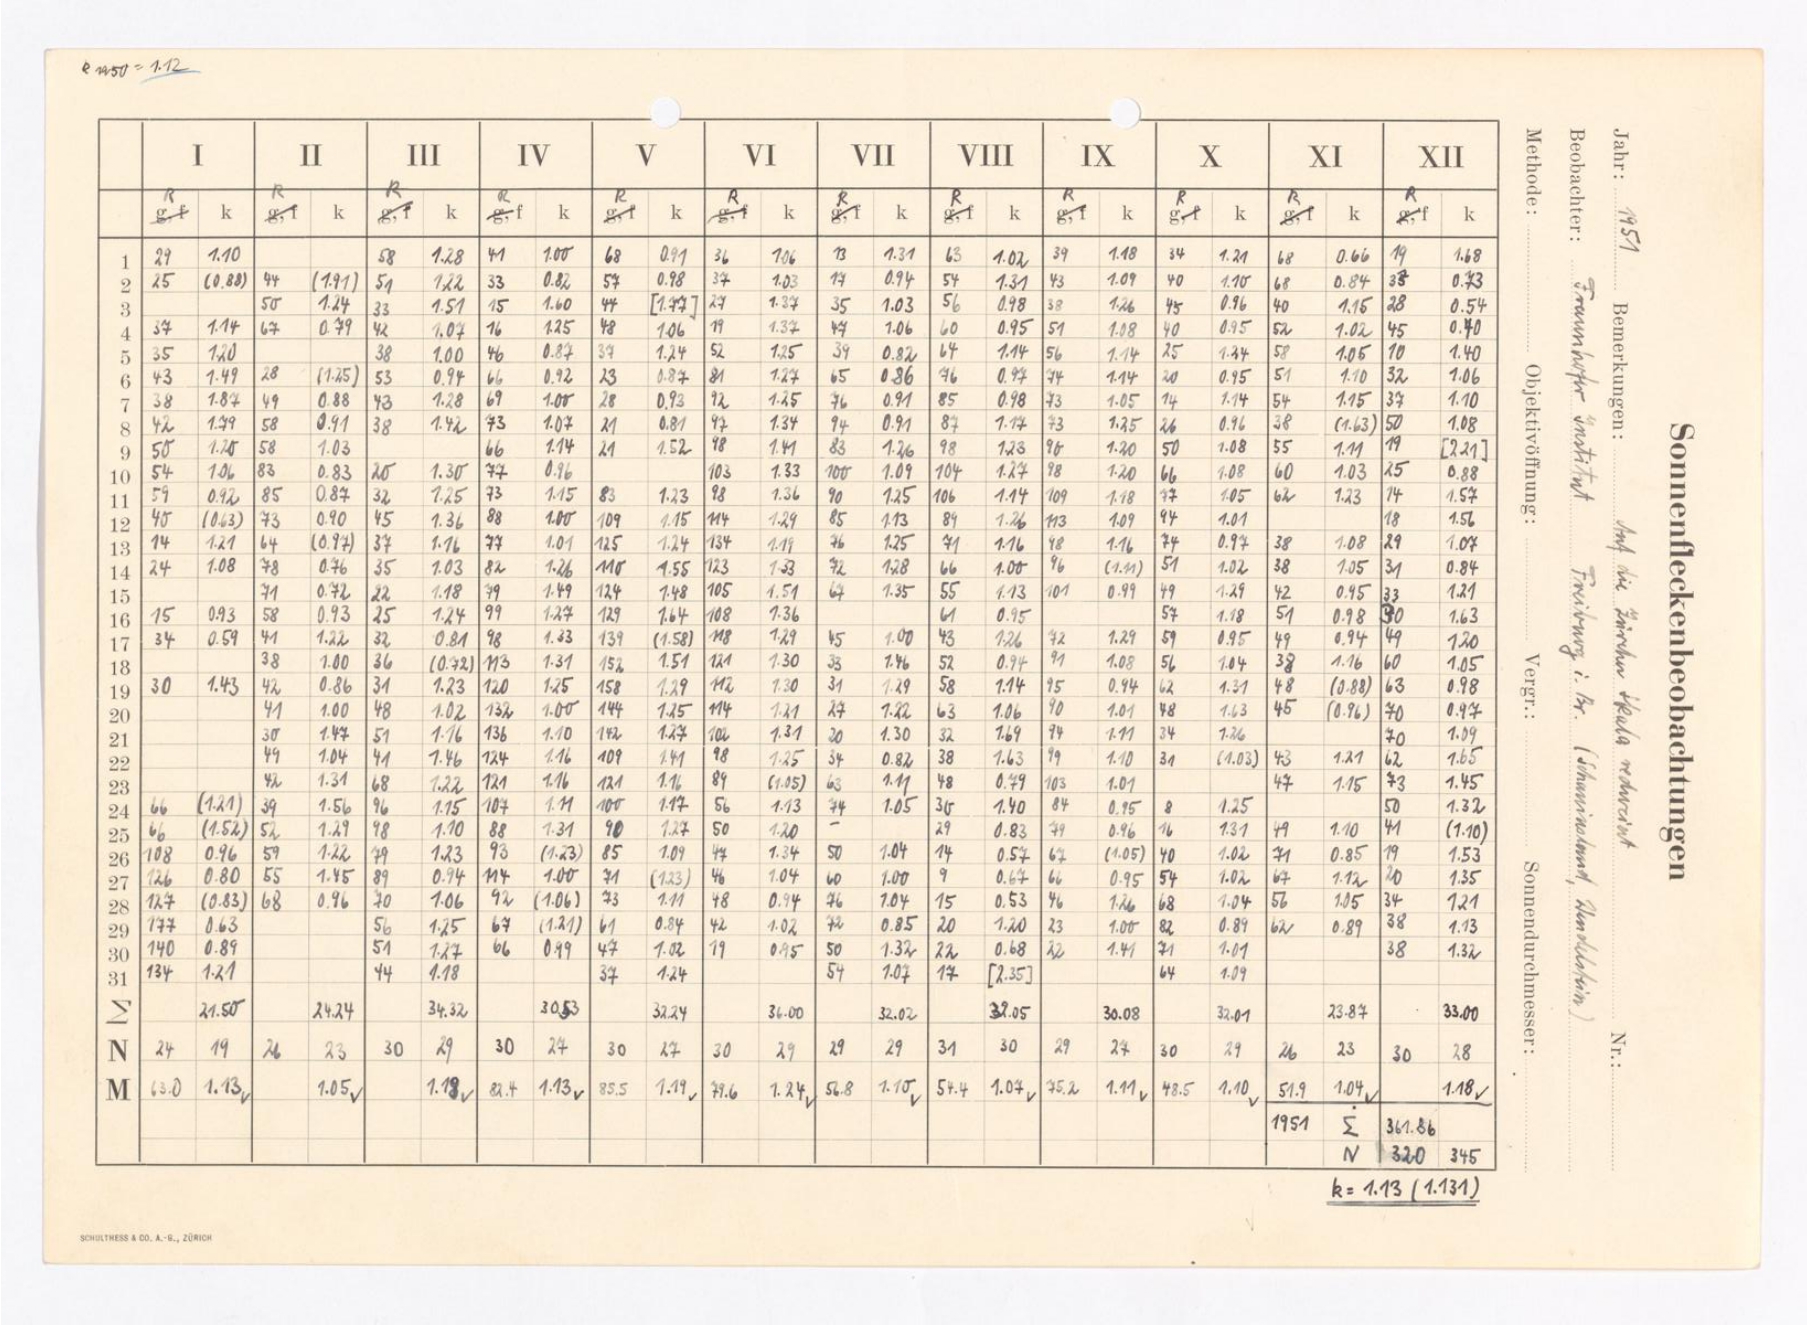 k 1950 = 1.12
I II III IV V VI VII VIII IX X XI XII
R R R R R R R R R R R R
g, f k g, f k g, f k g, f k g, f k g, f k g, f k g, f k g, f k g, f k g, f k g, f k
1 29 1.10 58 1.28 41 1.00 68 0.91 36 1.06 13 1.31 63 1.02 39 1.18 34 1.21 68 0.66 19 1.68
2 25 (0.88) 44 (1.91) 51 1.22 33 0.82 57 0.98 37 1.03 17 0.94 54 1.31 43 1.09 40 1.10 68 0.84 38 0.73
3 50 1.24 33 1.51 15 1.60 44 [1.77] 27 1.37 35 1.03 56 0.98 38 1.26 45 0.96 40 1.15 28 0.54
4 37 1.14 67 0.79 42 1.07 16 1.25 48 1.06 19 1.37 47 1.06 60 0.95 51 1.08 40 0.95 52 1.02 45 0.70
5 35 1.20 38 1.00 46 0.87 37 1.24 52 1.25 39 0.82 64 1.14 56 1.14 25 1.24 58 1.05 10 1.40
6 43 1.49 28 (1.25) 53 0.94 66 0.92 23 0.87 81 1.27 65 0.86 76 0.97 74 1.14 20 0.95 51 1.10 32 1.06
7 38 1.87 49 0.88 43 1.28 69 1.00 28 0.93 92 1.25 76 0.91 85 0.98 73 1.05 14 1.14 54 1.15 37 1.10
8 42 1.79 58 0.91 38 1.42 73 1.07 21 0.81 97 1.34 94 0.91 87 1.17 73 1.25 26 0.96 38 (1.63) 50 1.08
9 50 1.20 58 1.03 66 1.14 21 1.52 98 1.41 83 1.26 98 1.23 90 1.20 50 1.08 55 1.11 19 [2.21]
10 54 1.06 83 0.83 20 1.30 77 0.96 103 1.33 100 1.09 104 1.27 98 1.20 66 1.08 60 1.03 25 0.88
11 59 0.92 85 0.87 32 1.25 73 1.15 83 1.23 98 1.36 90 1.25 106 1.14 109 1.18 77 1.05 62 1.23 14 1.57
12 40 (0.63) 73 0.90 45 1.36 88 1.00 109 1.15 114 1.29 85 1.13 89 1.26 113 1.09 94 1.01 18 1.56
13 14 1.21 64 (0.97) 37 1.16 77 1.01 125 1.24 134 1.19 76 1.25 71 1.16 98 1.16 74 0.97 38 1.08 29 1.07
14 24 1.08 78 0.76 35 1.03 82 1.26 110 1.55 123 1.33 72 1.28 66 1.00 96 (1.11) 51 1.02 38 1.05 31 0.84
15 71 0.72 22 1.18 79 1.49 124 1.48 105 1.51 67 1.35 55 1.13 101 0.99 49 1.29 42 0.95 33 1.21
16 15 0.93 58 0.93 25 1.24 99 1.27 129 1.64 108 1.36 61 0.95 57 1.18 51 0.98 30 1.63
17 34 0.59 41 1.22 32 0.81 98 1.33 139 (1.58) 118 1.29 45 1.00 43 1.26 72 1.29 59 0.95 49 0.94 49 1.20
18 38 1.00 36 (0.72) 113 1.31 152 1.51 121 1.30 33 1.46 52 0.94 91 1.08 56 1.04 38 1.16 60 1.05
19 30 1.43 42 0.86 31 1.23 120 1.25 158 1.29 112 1.30 31 1.29 58 1.14 95 0.94 62 1.31 48 (0.88) 63 0.98
20 41 1.00 48 1.02 132 1.00 144 1.25 114 1.21 27 1.22 63 1.06 90 1.01 48 1.63 45 (0.96) 70 0.97
21 30 1.47 51 1.16 136 1.10 142 1.27 102 1.31 20 1.30 32 1.69 94 1.11 34 1.26 70 1.09
22 49 1.04 41 1.46 124 1.16 109 1.41 98 1.25 34 0.82 38 1.63 99 1.10 31 (1.03) 43 1.21 62 1.65
23 42 1.31 68 1.22 121 1.16 121 1.16 89 (1.05) 63 1.11 48 0.79 103 1.01 47 1.15 73 1.45
24 66 (1.21) 39 1.56 96 1.15 107 1.11 100 1.17 56 1.13 74 1.05 30 1.40 84 0.95 8 1.25 50 1.32
25 66 (1.52) 52 1.29 98 1.10 88 1.31 90 1.27 50 1.20 – 29 0.83 79 0.96 16 1.31 49 1.10 41 (1.10)
26 108 0.96 59 1.22 79 1.23 93 (1.23) 85 1.09 47 1.34 50 1.04 14 0.57 67 (1.05) 40 1.02 71 0.85 19 1.53
27 126 0.80 55 1.45 89 0.94 114 1.00 71 (1.23) 46 1.04 60 1.00 9 0.67 66 0.95 54 1.02 67 1.12 20 1.35
28 127 (0.83) 68 0.96 70 1.06 92 (1.06) 73 1.11 48 0.94 76 1.04 15 0.53 46 1.26 68 1.04 56 1.05 34 1.21
29 177 0.63 56 1.25 67 (1.21) 61 0.84 42 1.02 72 0.85 20 1.20 23 1.00 82 0.89 62 0.89 38 1.13
30 140 0.89 51 1.27 66 0.99 47 1.02 19 0.95 50 1.32 22 0.68 22 1.41 71 1.01 38 1.32
31 134 1.21 44 1.18 37 1.24 54 1.07 17 [2.35] 64 1.09
Σ 21.50 24.24 34.32 30.53 32.24 36.00 32.02 32.05 30.08 32.01 23.87 33.00
N 24 19 26 23 30 29 30 27 30 27 30 29 29 29 31 30 29 27 30 29 26 23 30 28
M 63.0 1.13✓ 1.05✓ 1.18✓ 82.4 1.13✓ 85.5 1.19✓ 79.6 1.24✓ 56.8 1.10✓ 54.4 1.07✓ 75.2 1.11✓ 48.5 1.10✓ 51.9 1.04✓ 1.18✓
1951 Σ 361.86
N 320 345
k = 1.13 (1.131)
SCHULTHESS & CO. A.-G., ZÜRICH
Sonnenfleckenbeobachtungen
Jahr: 1951 Bemerkungen: Auf die Zürcher Skala reduziert Nr.:
Beobachter: Fraunhofer Institut Freiburg i. Br. (Schauinsland, Wendelstein)
Methode: Objektivöffnung: Vergr.: Sonnendurchmesser: